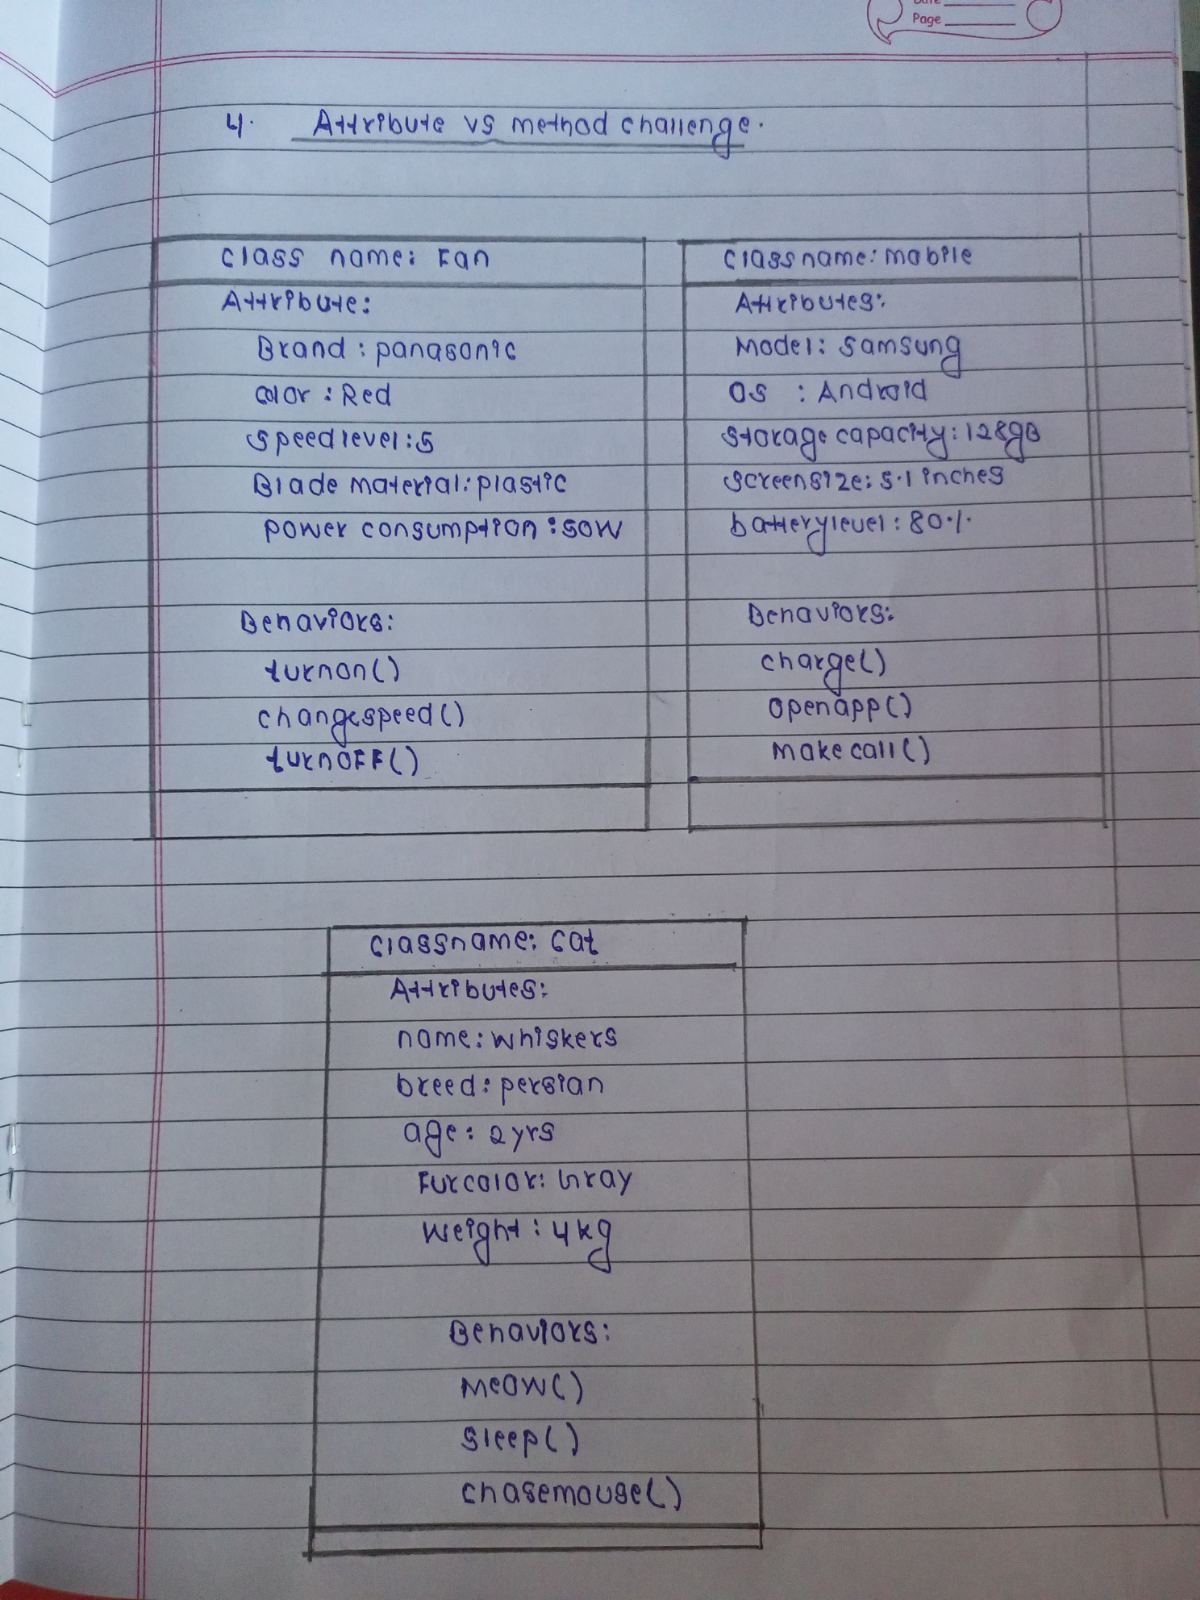 Date
Page
4. Attribute vs method challenge.
class name: Fan
Attribute:
Brand: panasonic
color: Red
speedlevel: 5
Blade material: plastic
power consumption: 50W
Behaviors:
turnon()
changespeed()
turnoFF()
classname: mobile
Attributes:
Model: Samsung
OS : Android
storage capacity: 128gB
screensize: 5.1 inches
batterylevel: 80%
Behaviors:
charge()
openapp()
make call()
classname: cat
Attributes:
name: whiskers
breed: persian
age: 2 yrs
Furcolor: Gray
Weight: 4kg
Behaviors:
Meow()
Sleep()
chasemouse()